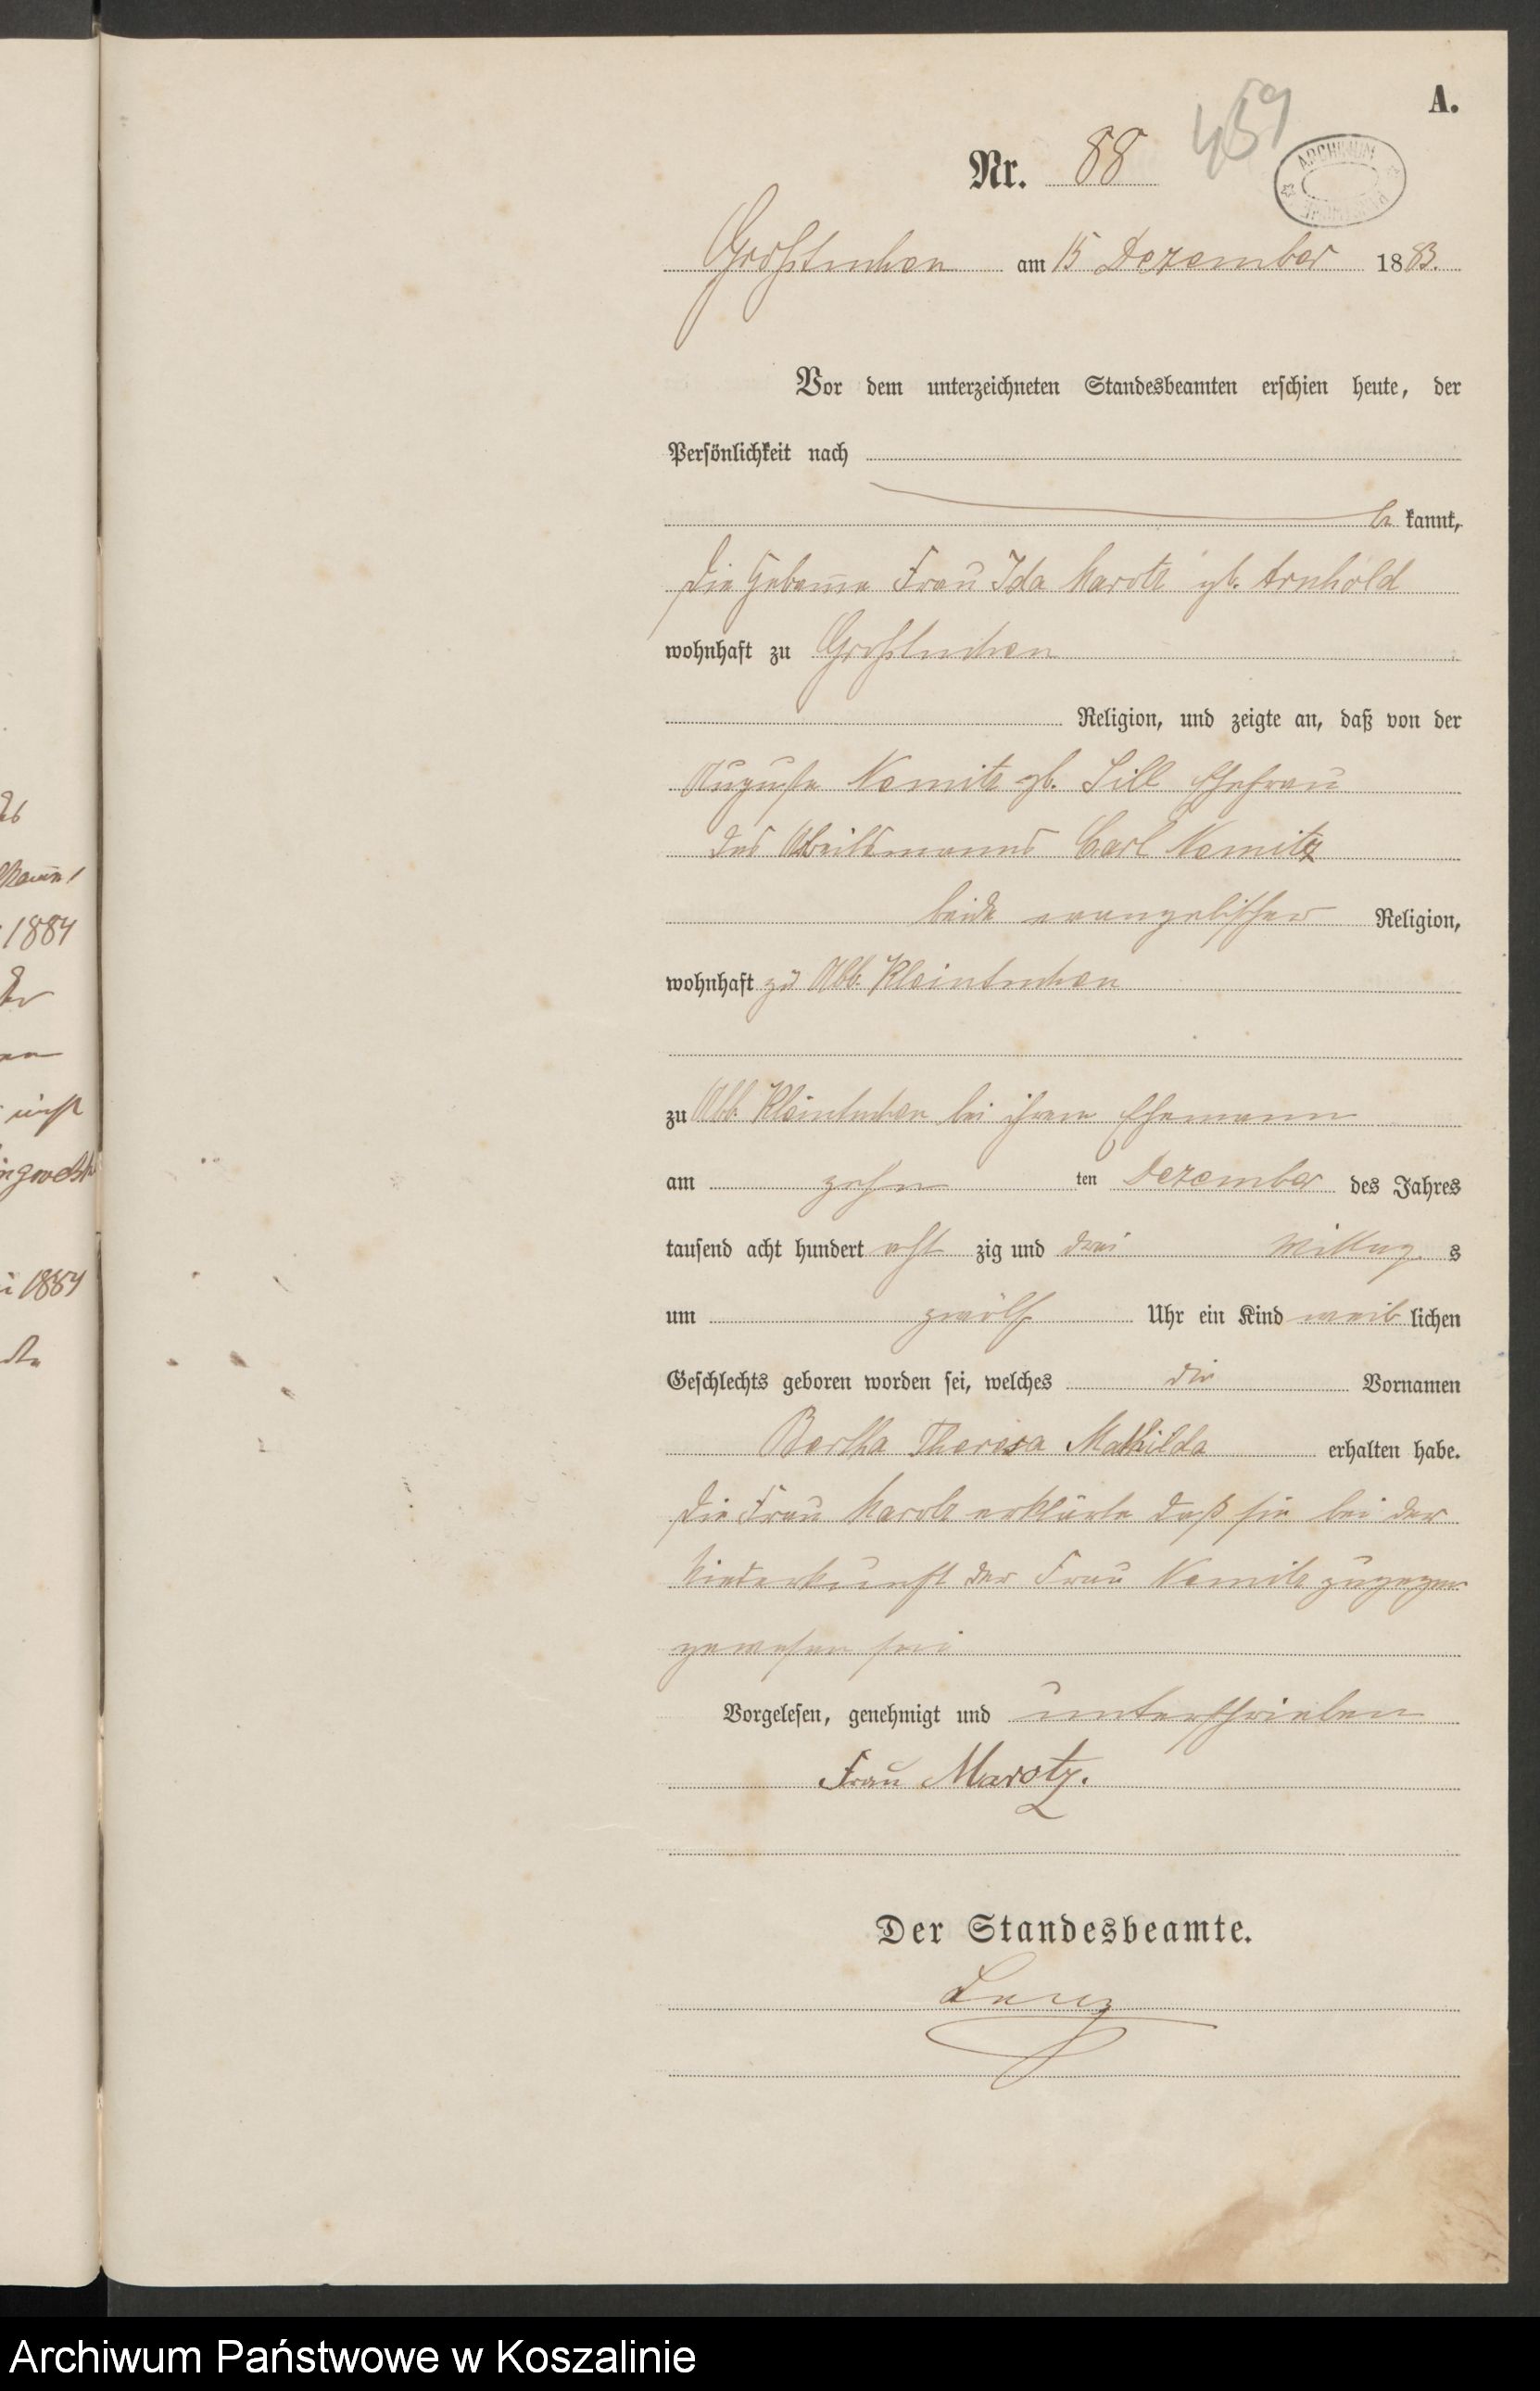 A.
459
Nr. 88
ARCHIWUM
Großtuchen am 15 Dezember 1883.
Vor dem unterzeichneten Standesbeamten erschien heute, der
Persönlichkeit nach
be kannt,
die Hebamme Frau Ida Marotz gb. Arnhold
wohnhaft zu Großtuchen
Religion, und zeigte an, daß von der
Auguste Nemitz gb. Lill Ehefrau
des Arbeitsmanns Carl Nemitz
beide evangelischer Religion,
wohnhaft zu Abb. Kleintuchen
zu Abb. Kleintuchen bei ihrem Ehemann
am zehn ten Dezember des Jahres
tausend acht hundert acht zig und drei Mittag s
um zwölf Uhr ein Kind weib lichen
Geschlechts geboren worden sei, welches die Vornamen
Bertha Theresa Mathilda erhalten habe.
die Frau Marotz erklärte daß sie bei der
Niederkunft der Frau Nemitz zugegen
gewesen sei
Vorgelesen, genehmigt und unterschrieben
Frau Marotz.
Der Standesbeamte.
1884
i 1884
Archiwum Państwowe w Koszalinie